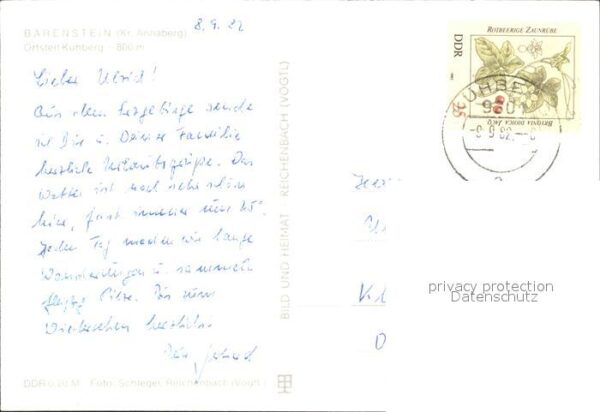 8.9.82
BÄRENSTEIN (Kr. Annaberg)
Ortsteil Kühberg - 800 m
Lieber Ulrich!
Aus dem Erzgebirge sende
ich Dir u. Deiner Familie
herzliche Urlaubsgrüße. Das
Wetter ist noch sehr schön
hier, fast immer
Jeden Tag machen wir lange
Wanderungen u. sammeln
fleißig Pilze. Bis zum
Wiedersehen herzlichst
Dein
DDR 0,20 M Foto: Schlegel, Reichenbach (Vogtl.)
BILD UND HEIMAT REICHENBACH (VOGTL)
ROTBEERIGE ZAUNRÜBE
DDR
25
BRYONIA DIOICA JACQ.
9301
-8.9.82
privacy protection
Datenschutz